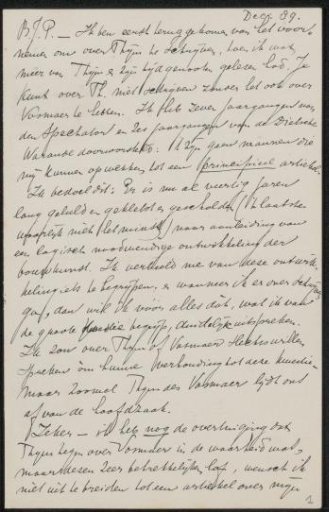 Decr 89.
B.J.P. — Ik ben eerst teruggekomen van het voor-
nemen om over Thijm te schrijven, toen ik wat
meer van Thijm & zijn tijdgenooten gelezen had. Je
kunt over Th. niet schrijven zonder het ook over
Vosmaer te hebben. Ik heb zeven jaargangen van
den Spectator en zes jaargangen van de Dietsche
Warande doorworsteld. 't Zijn geen mannen die
mij kunnen opwekken tot een principieel artikel.
Ik bedoel dit: Er is nu al veertig jaren
lang geluld en gekletst en gescholden, (
niet het minst) naar aanleiding van
een logisch noodwendige ontwikkeling der
bouwkunst. Ik verbeeld me van deze ontwik-
keling iets te begrijpen, & wanneer ik er over
ga, dan wil ik vóór alles dát, wat ik van
de groote begrijp, duidelijk uitspreken.
Ik zou over Thijm of Vosmaer slechts willen
spreken om hunne verhouding tot deze kwestie.
Maar zoowel Thijm als Vosmaer lijdt ons
af van de hoofdzaak.
Zeker — ik heb nog de overtuiging dat
Thijm tegen over Vosmaer in de waarheid was,
maar dezen zeer betrekkelijken lof, wensch ik
niet uit te breiden tot een artikel over mijn